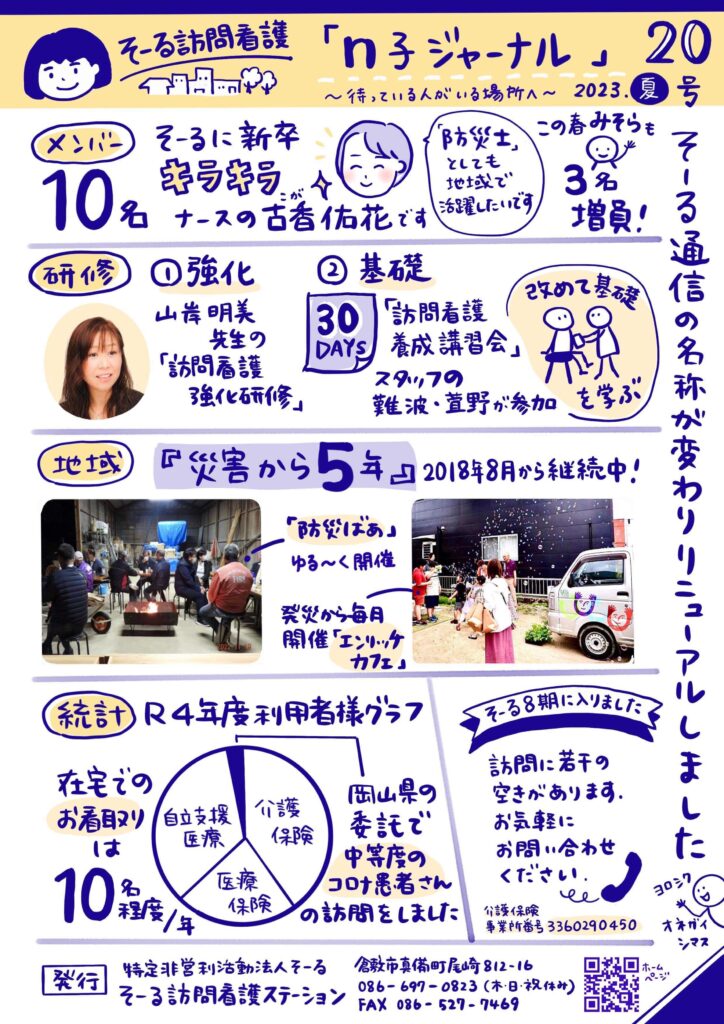 そーる訪問看護
「n子ジャーナル」
20号
～待っている人がいる場所へ～
2023.夏
そーる通信の名称が変わりリニューアルしました
メンバー
10名
そーるに新卒
キラキラ
ナースの古香佑花です
こが
「防災士」
としても
地域で
活躍したいです
この春みそらも
3名
増員!
研修
①強化
山岸明美
先生の
「訪問看護
強化研修」
②基礎
30
DAYS
「訪問看護
養成講習会」
スタッフの
難波・萱野が参加
改めて基礎
を学ぶ
地域
『災害から5年』
2018年8月から継続中!
「防災ばあ」
ゆる～く開催
発災から毎月
開催「エンリッチ
カフェ」
統計
R4年度利用者様グラフ
在宅での
お看取り
は
10名
程度/年
自立支援
医療
介護
保険
医療
保険
岡山県の
委託で
中等度の
コロナ患者さん
の訪問をしました
そーる8期に入りました
訪問に若干の
空きがあります.
お気軽に
お問い合わせ
ください.
介護保険
事業所番号 3360290450
ヨロシク
オネガイ
シマス
発行
特定非営利活動法人そーる
そーる訪問看護ステーション
倉敷市真備町尾崎812-16
086-697-0823(木・日・祝休み)
FAX 086-527-7469
ホーム
ページ